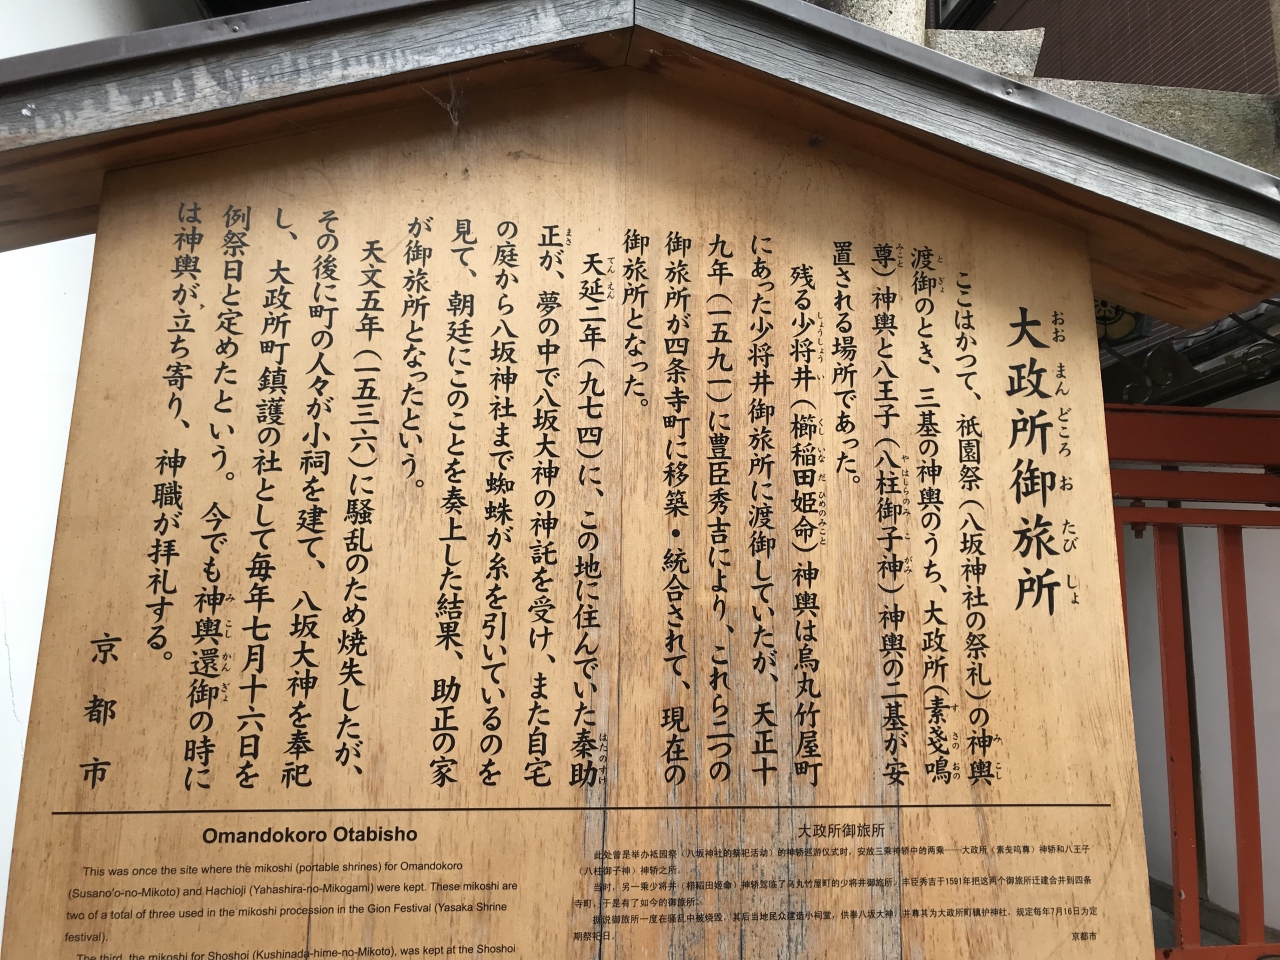 大政所御旅所
おお まん どころ お たび しょ
ここはかつて、祇園祭（八坂神社の祭礼）の神輿
み こし
渡御のとき、三基の神輿のうち、大政所（素戔嗚
と ぎょ す さの おの
尊）神輿と八王子（八柱御子神）神輿の二基が安
みこと や はしらのみ こ がみ
置される場所であった。
残る少将井（櫛稲田姫命）神輿は烏丸竹屋町
しょうしょう い くし いな だ ひめのみこと
にあった少将井御旅所に渡御していたが、天正十
九年（一五九一）に豊臣秀吉により、これら二つの
御旅所が四条寺町に移築・統合されて、現在の
御旅所となった。
天延二年（九七四）に、この地に住んでいた秦助
てん えん はたのすけ
正が、夢の中で八坂大神の神託を受け、また自宅
まさ
の庭から八坂神社まで蜘蛛が糸を引いているのを
見て、朝廷にこのことを奏上した結果、助正の家
が御旅所となったという。
天文五年（一五三六）に騒乱のため焼失したが、
その後に町の人々が小祠を建て、八坂大神を奉祀
し、大政所町鎮護の社として毎年七月十六日を
例祭日と定めたという。今でも神輿還御の時に
み こし かん ぎょ
は神輿が立ち寄り、神職が拝礼する。
京都市
Omandokoro Otabisho
This was once the site where the mikoshi (portable shrines) for Omandokoro
(Susano'o-no-Mikoto) and Hachioji (Yahashira-no-Mikogami) were kept. These mikoshi are
two of a total of three used in the mikoshi procession in the Gion Festival (Yasaka Shrine
festival).
The third, the mikoshi for Shoshoi (Kushinada-hime-no-Mikoto), was kept at the Shoshoi
大政所御旅所
此处曾是举办祇园祭（八坂神社的祭祀活动）的神轿巡游仪式时，安放三乘神轿中的两乘——大政所（素戈呜尊）神轿和八王子
（八柱御子神）神轿之所。
当时，另一乘少将井（栉稻田姬命）神轿驾临了乌丸竹屋町的少将井御旅所。丰臣秀吉于1591年把这两个御旅所迁建合并到四条
寺町，于是有了如今的御旅所。
据说御旅所一度在骚乱中被烧毁，其后当地民众建造小祠堂，供奉八坂大神，并尊其为大政所町镇护神社，规定每年7月16日为定
期祭祀日。
京都市